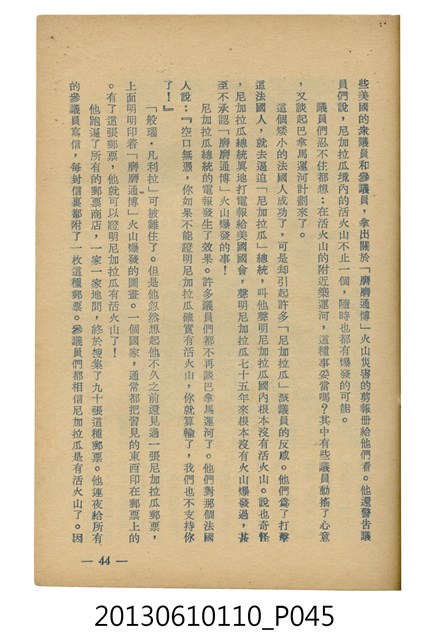 些美國的衆議員和參議員，拿出關於「磨磨通博」火山災害的剪報册給他們看。他還警告議
員們說，尼加拉瓜境內的活火山不止一個，隨時也都有爆發的可能。
議員們忍不住都想：在活火山的附近築運河，這種事妥當嗎？其中有些議員動搖了心意
，又談起巴拿馬運河計劃來了。
這個矮小的法國人成功了，可是却引起許多「尼加拉瓜」派議員的反感。他們爲了打擊
這法國人，就去逼迫「尼加拉瓜」總統，叫他聲明尼加拉瓜國內根本沒有活火山。說也奇怪
，尼加拉瓜總統異地打電報給美國國會，聲明尼加拉瓜七十五年來根本沒有火山爆發過，甚
至不承認「磨磨通博」火山爆發的事！
尼加拉瓜總統的電報發生了效果。許多議員們都不再談巴拿馬運河了。他們對那個法國
人說：『空口無憑，你如果不能證明尼加拉瓜確實有活火山，你就算輸了，我們也不支持你
了！』
「般瑙・凡利拉」可被難住了。但是他忽然想起他不久之前還見過一張尼加拉瓜郵票，
上面明明印着「磨磨通博」火山爆發的圖畫。一個國家，通常都把習見的東西印在郵票上的
。有了這張郵票，他就可以證明尼加拉瓜有活火山了！
他跑遍了所有的郵票商店，一家一家地問，終於搜集了九十張這種郵票。他連夜給所有
的參議員寫信，每封信裏都附了一枚這種郵票。參議員們都相信尼加拉瓜是有活火山了。因
— 44 —
20130610110_P045